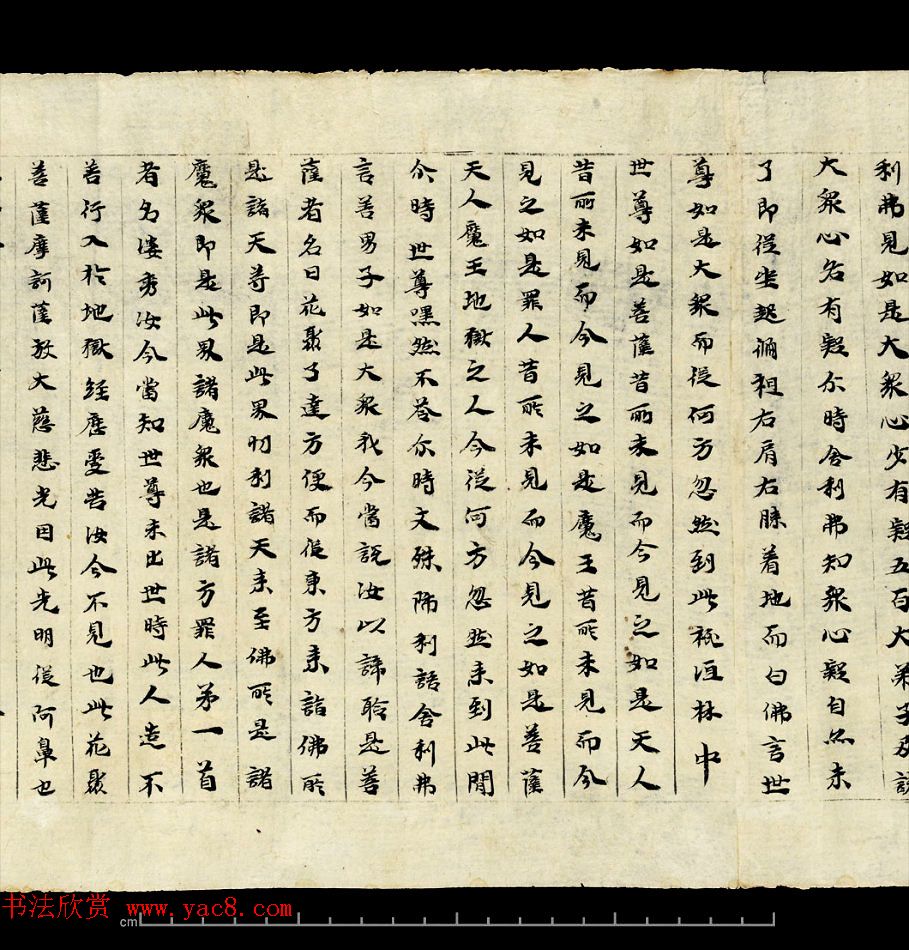 利弗見如是大衆心少有疑五百大弟子及諸
大衆心各有疑尒時舍利弗知衆心疑自亦未
了即從坐起徧袒右肩右膝着地而白佛言世
尊如是大衆而從何方忽然到此祇洹林中
世尊如是菩薩昔所未見而今見之如是天人
昔所未見而今見之如是魔王昔所未見而今
見之如是罪人昔所未見而今見之如是善薩
天人魔王地獄之人今從何方忽然来到此間
尒時世尊嘿然不荅尒時文殊師利語舍利弗
言善男子如是大衆我今當説汝以諦聆是善
薩者名曰花聚了達方便而從東方来詣佛所
是諸天等即是此界忉利諸天来至佛所是諸
魔衆即是此界諸魔衆也是諸方罪人弟一首
者名婆秀汝今當知世尊未出世時此人造不
善行入於地獄經歷受苦汝今不見也此花聚
善薩摩訶薩放大慈悲光因此光明從阿鼻也
书法欣赏 www.yac8.com
cm